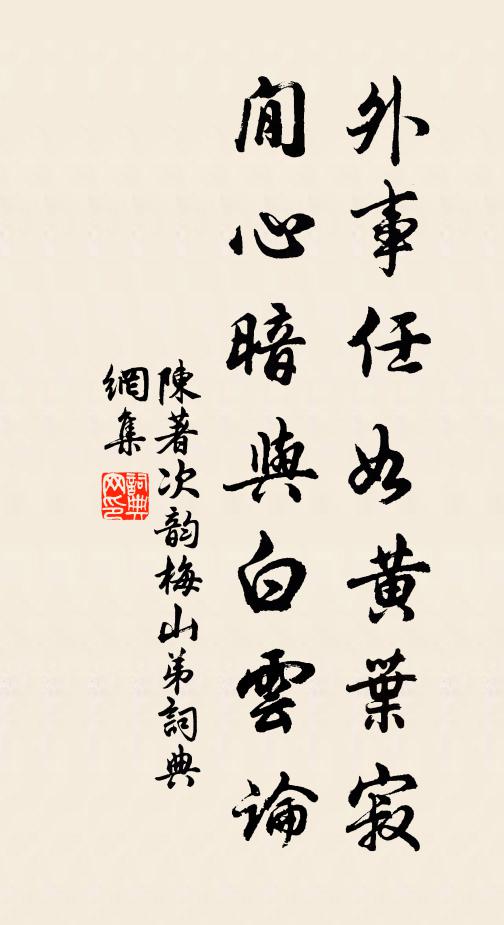 外事任如黄葉寂
閒心暗與白雲論
陳著次韵梅山弟詞典
網集
詞典
网印